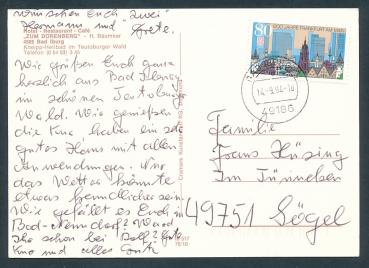 wünschen Euch zwei
Hermann und Grete.
Hotel - Restaurant - Café
„ZUM DÖRENBERG" - H. Bäumker
4505 Bad Iburg
Kneipp-Heilbad im Teutoburger Wald
Telefon
Wir grüßen Euch ganz
herzlich aus Bad Iburg
im schönen Teutoburger
Wald. Wir genießen
die Kur, haben ein sehr
gutes Haus mit allen
Anwendungen. Nur
das Wetter könnte
etwas freundlicher sein.
Wie gefällt es Euch in
Bad-Nenndorf? Ward
Ihr schon bei Rolf? Gute
Kur und alles Gute
80
1200 JAHRE FRANKFURT AM MAIN
14.-9.94-18
49186
Familie
Hans Hüsing
49751 Sögel